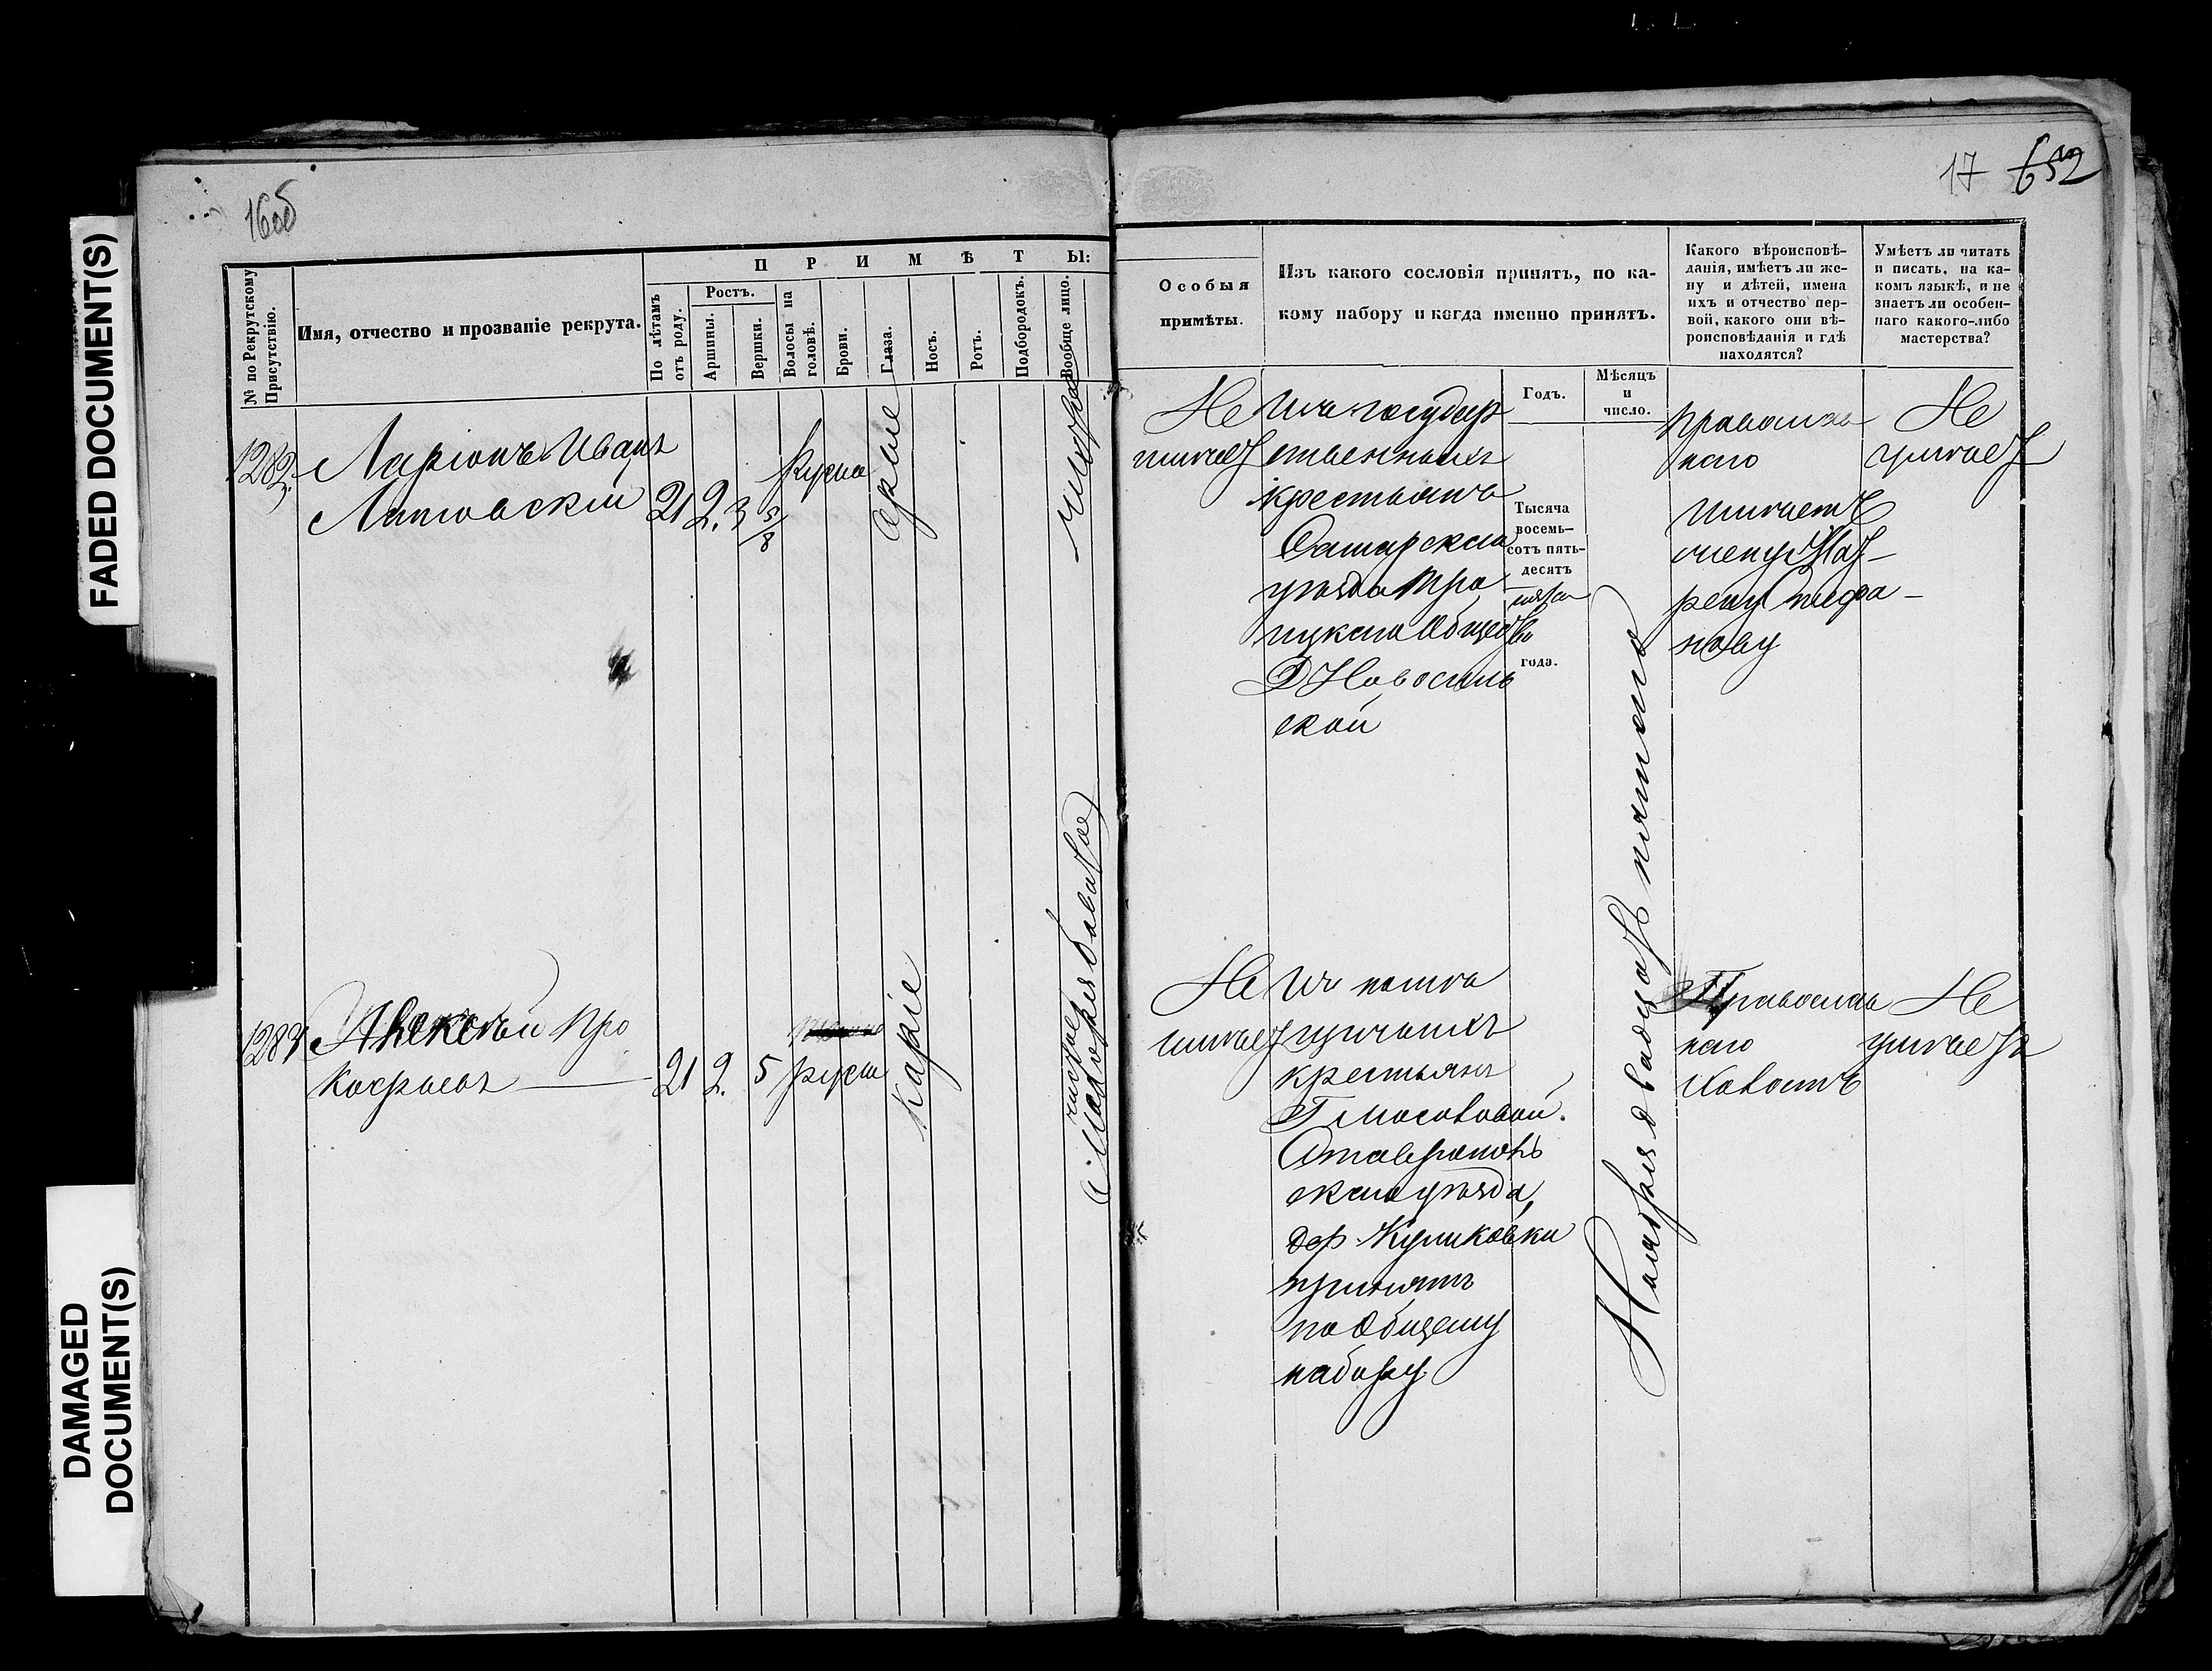 FADED DOCUMENT(S)
DAMAGED
DOCUMENT(S)
16об
№ по Рекрутскому
Присутствію.
Имя, отчество и прозваніе рекрута.
П Р И М Ѣ Т Ы:
По лѣтамъ
отъ роду.
Ростъ.
Аршины.
Вершки.
Волосы на
головѣ.
Брови.
Глаза.
Носъ.
Ротъ.
Подбородокъ.
Вообще лицо.
1282.
Ларіонъ Иванъ
Литовскій
21 2. 3 5/8
Русые
сѣрые
чистое
1283
Алексѣй Про
кофьевъ
21 2. 5 русые
Каріе
чистое
17 652
Особыя
примѣты.
Изъ какого сословія принятъ, по ка-
кому набору и когда именно принятъ.
Годъ.
Мѣсяцъ
и
число.
Какого вѣроисповѣ-
данія, имѣетъ ли же-
ну и дѣтей, имена
ихъ и отчество пер-
вой, какого они вѣ-
роисповѣданія и гдѣ
находятся?
Умѣетъ ли читать
и писать, на ка-
комъ языкѣ, и не
знаетъ ли особен-
наго какого-либо
мастерства?
Не
имѣет
Изъ государ
ственныхъ
крестьянъ
Самарскаго
уѣзда
Общес
Д Новосиль
ской
Тысяча
восемь-
сотъ пять-
десятъ
года.
Ноября двадцать пятого
Православ
наго
имѣетъ
жену
Стефа
нову
Не
умѣет
Не
имѣет
Изъ помѣ
щичьихъ
крестьянъ
Г Мосоловой.
Ставрополь
скаго уѣзда,
дер Куликовки
принятъ
по Общему
набору.
Православ
наго
холостъ
Не
умѣетъ